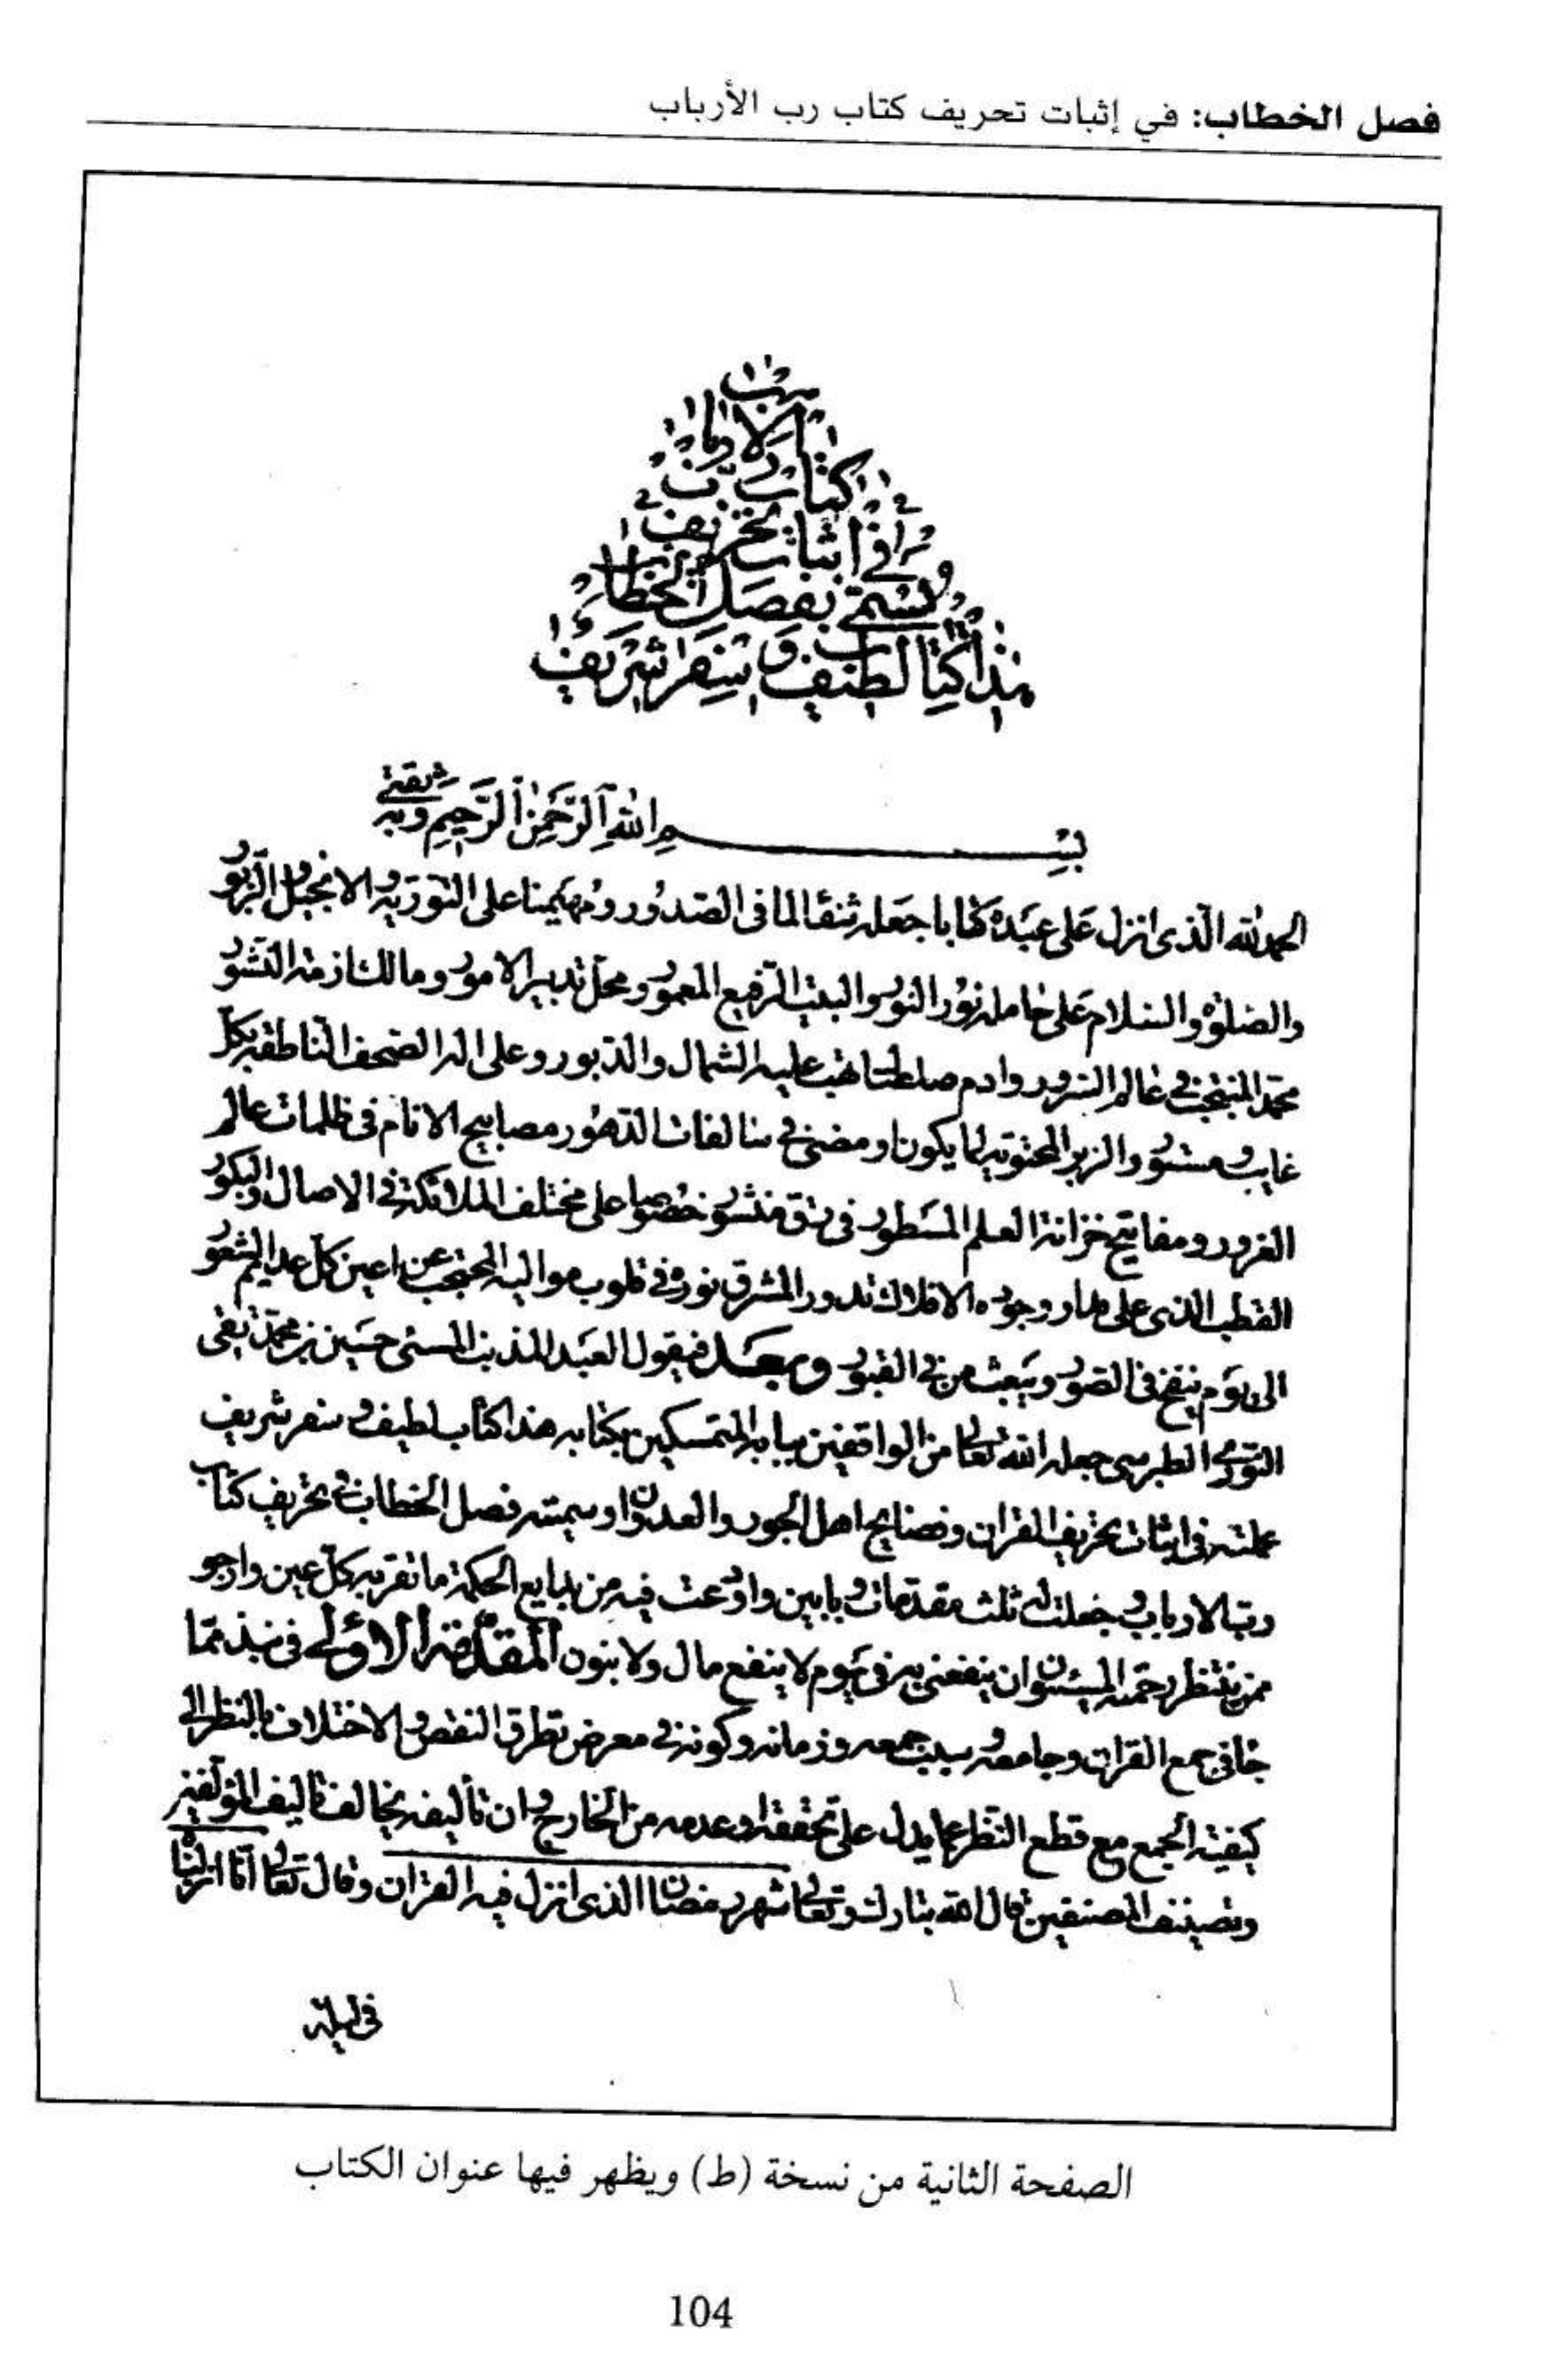 فصل الخطاب: في إثبات تحريف كتاب رب الأرباب
الارباب
كتاب رب
في اثبات تحريف
يسمى بفصل الخطاب
هذا كتاب لطيف و سفر شريف
بسم الله الرحمن الرحيم وبه ثقتي
الحمد لله الذى انزل على عبده كتابا جعله شفاء لما فى الصدور ومهيمنا على التورية والانجيل والزبور
والصلوة والسلام على حامله نور النور والبيت الرفيع المعمور ومحل تدبير الامور ومالك ازمة النشور
محمد المنتجب في عالم السرور وادم صلصلت تهب عليه الشمال والدبور وعلى اله الصحف الناطقة بكل
غايب ومستور والزبر المحتوية لما يكون او مضى في سالفات الدهور مصابيح الانام فى ظلمات عالم
الغرور ومفاتيح خزانة العلم المسطور فى رق منشور خصوصا على مختلف الملائكة في الاصال والبكور
القطب الذى على مدار وجوده الافلاك تدور المشرق نوره في قلوب مواليه المحتجب عن اعين كل عديم الشعور
الى يوم ينفخ فى الصور ويبعث من في القبور وبعد فيقول العبد المذنب المسئ حسين بن محمد تقى
النورى الطبرسى جعله الله تعالى من الواقفين ببابه المتمسكين بكتابه هذا كتاب لطيف و سفر شريف
عملته فى اثبات تحريف القران وفضايح اهل الجور والعدوان وسميته فصل الخطاب في تحريف كتاب
رب الارباب و جعلت له ثلث مقدمات و بابين واودعت فيه من بدايع الحكمة ما تقر به كل عين وارجو
ممن ينتظر رحمته المسيئون ان ينفعنى به فى يوم لا ينفع مال ولا بنون المقدمة الاولى فى نبذ مما
جاء فى جمع القران وجامعه و سبب جمعه وزمانه وكونه في معرض تطرق النقص والاختلاف بالنظر الى
كيفية الجمع مع قطع النظر عما يدل على تحققه او عدمه من الخارج و ان تأليفه يخالف تاليف المؤلفين
وتصنيف المصنفين قال الله تبارك وتعالى شهر رمضان الذى انزل فيه القران وقال تعالى انا انزلناه
فى ليلة
الصفحة الثانية من نسخة (ط) ويظهر فيها عنوان الكتاب
104